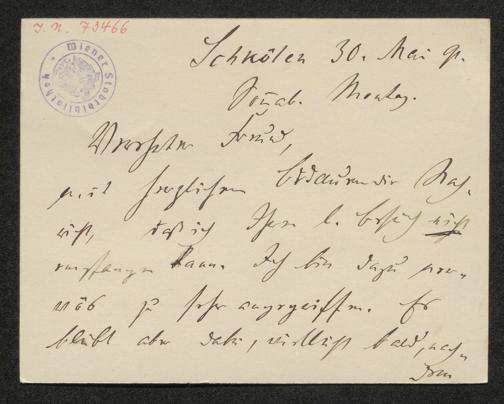 J. N. 73466
Wiener Stadtbibliothek
Schkölen 30. Mai 91.
Sonnab. Montag.
Verehrter Freund,
mit herzlichem Bedauern die Nach-
richt, daß ich Ihren l. Besuch nicht
empfangen kann. Ich bin dazu ner-
vös zu sehr angegriffen. Es
bleibt aber dabei, vielleicht bald, nach-
dem